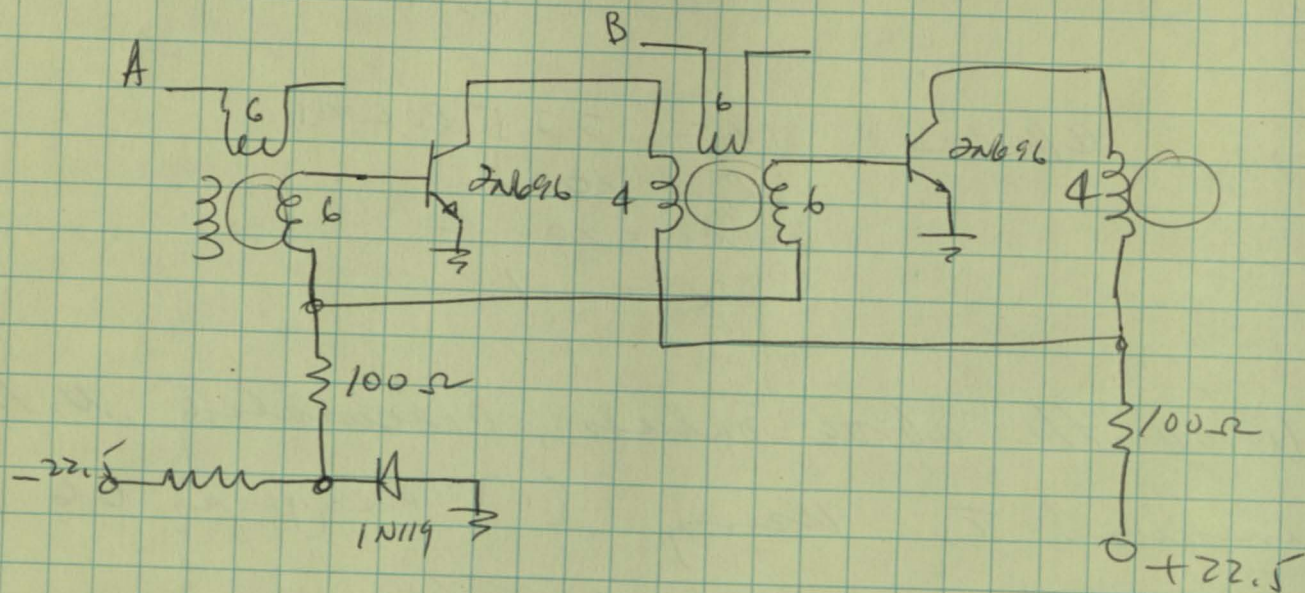 B
A
6
6
2N696
2N696
6
4
6
4
100Ω
100Ω
-22.5
1N119
+22.5